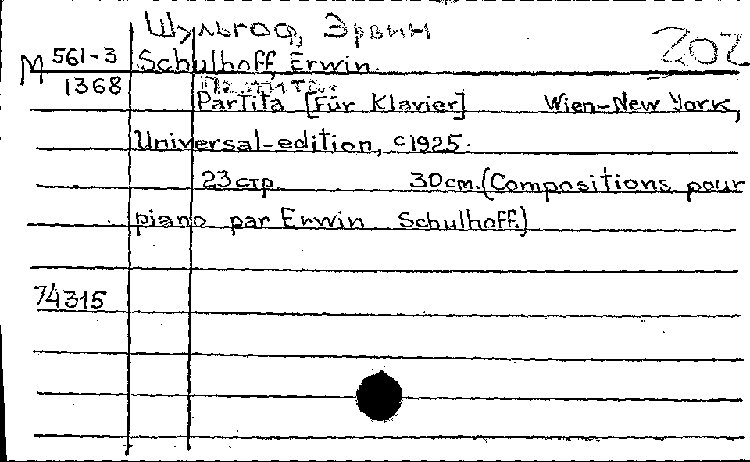 Шульгоф, Эрвин
202
M 561-3 Schulhoff, Erwin.
1368
Partita [für Klavier] Wien-New York,
Universal-edition, c1925.
23 стр. 30 см. (Compositions pour
piano par Erwin Schulhoff.)
74315